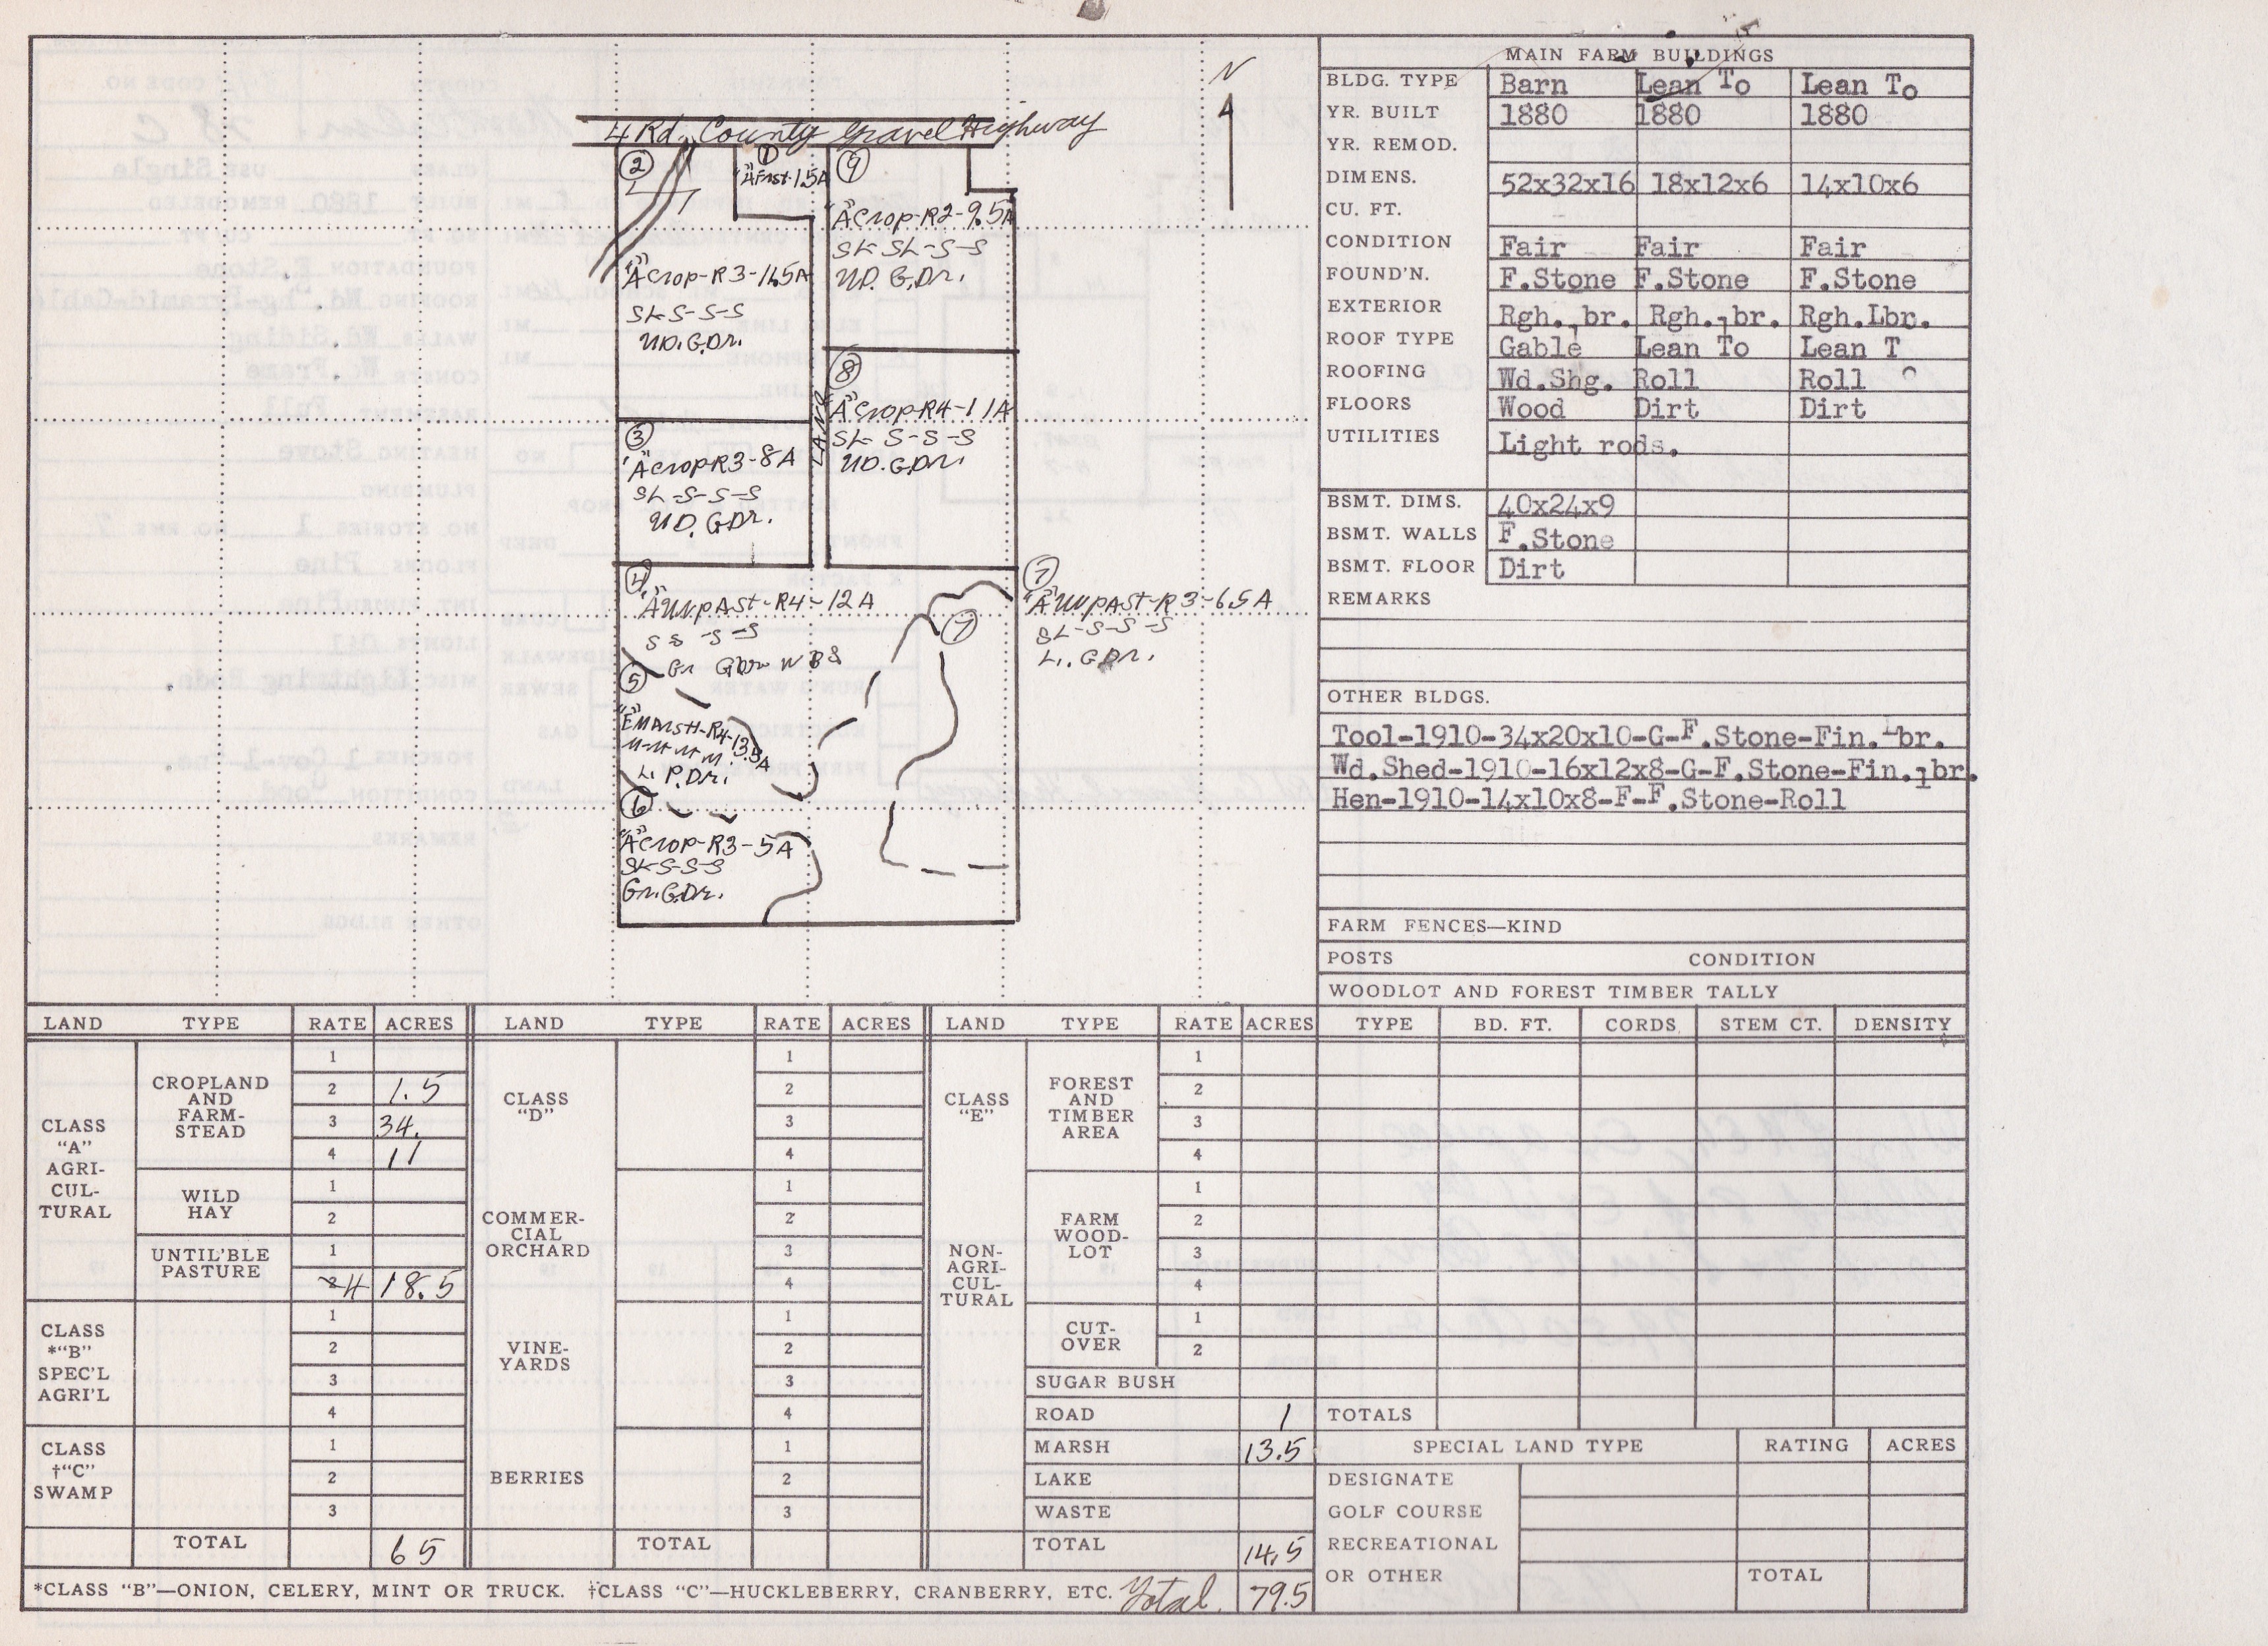 N
4 Rd. County Gravel Highway
②
①
"A" Fmst-1.5A
⑨
"A" Crop-R2-9.5A
SL SL-S-S
UD. G.Dr.
"A" Crop-R3-11.5A
SL-S-S-S
UD.G.Dr.
⑧
"A" Crop-R4-11A
SL-S-S-S
UD.G.Dr.
LANE
③
"A" Crop-R3-8A
SL-S-S-S
UD. G.Dr.
④
"A" UnpAst-R4-12A
S S -S-S
Gr GDr
⑦
"A" UnpAst-R3-6.5A
SL-S-S-S
L. G.Dr.
⑦
⑤
"E" Marsh-R4-13.5A
M-M-M-M.
L. P.Dr.
⑥
"A" Crop-R3-5A
SL-S-S-S
Gr.G.Dr.
MAIN FARM BUILDINGS
BLDG. TYPE Barn Lean To Lean To
YR. BUILT 1880 1880 1880
YR. REMOD.
DIMENS. 52x32x16 18x12x6 14x10x6
CU. FT.
CONDITION Fair Fair Fair
FOUND'N. F.Stone F.Stone F.Stone
EXTERIOR Rgh.Lbr. Rgh.Lbr. Rgh.Lbr.
ROOF TYPE Gable Lean To Lean To
ROOFING Wd.Shg. Roll Roll
FLOORS Wood Dirt Dirt
UTILITIES Light rods.
BSMT. DIMS. 40x24x9
BSMT. WALLS F.Stone
BSMT. FLOOR Dirt
REMARKS
OTHER BLDGS.
Tool-1910-34x20x10-G-F.Stone-Fin.Lbr.
Wd.Shed-1910-16x12x8-G-F.Stone-Fin.Lbr.
Hen-1910-14x10x8-F-F.Stone-Roll
FARM FENCES—KIND
POSTS CONDITION
WOODLOT AND FOREST TIMBER TALLY
TYPE BD. FT. CORDS STEM CT. DENSITY
TOTALS
SPECIAL LAND TYPE RATING ACRES
DESIGNATE
GOLF COURSE
RECREATIONAL
OR OTHER TOTAL
LAND TYPE RATE ACRES
CLASS
"A"
AGRI-
CUL-
TURAL
CROPLAND
AND
FARM-
STEAD
1
2 1.5
3 34.
4 11
WILD
HAY
1
2
UNTIL'BLE
PASTURE
1
2 4 18.5
CLASS
*"B"
SPEC'L
AGRI'L
1
2
3
4
CLASS
†"C"
SWAMP
1
2
3
TOTAL 65
LAND TYPE RATE ACRES
CLASS
"D"
1
2
3
4
COMMER-
CIAL
ORCHARD
1
2
3
4
VINE-
YARDS
1
2
3
4
BERRIES
1
2
3
TOTAL
LAND TYPE RATE ACRES
CLASS
"E"
NON-
AGRI-
CUL-
TURAL
FOREST
AND
TIMBER
AREA
1
2
3
4
FARM
WOOD-
LOT
1
2
3
4
CUT-
OVER
1
2
SUGAR BUSH
ROAD 1
MARSH 13.5
LAKE
WASTE
TOTAL 14.5
*CLASS "B"—ONION, CELERY, MINT OR TRUCK. †CLASS "C"—HUCKLEBERRY, CRANBERRY, ETC. Total 79.5